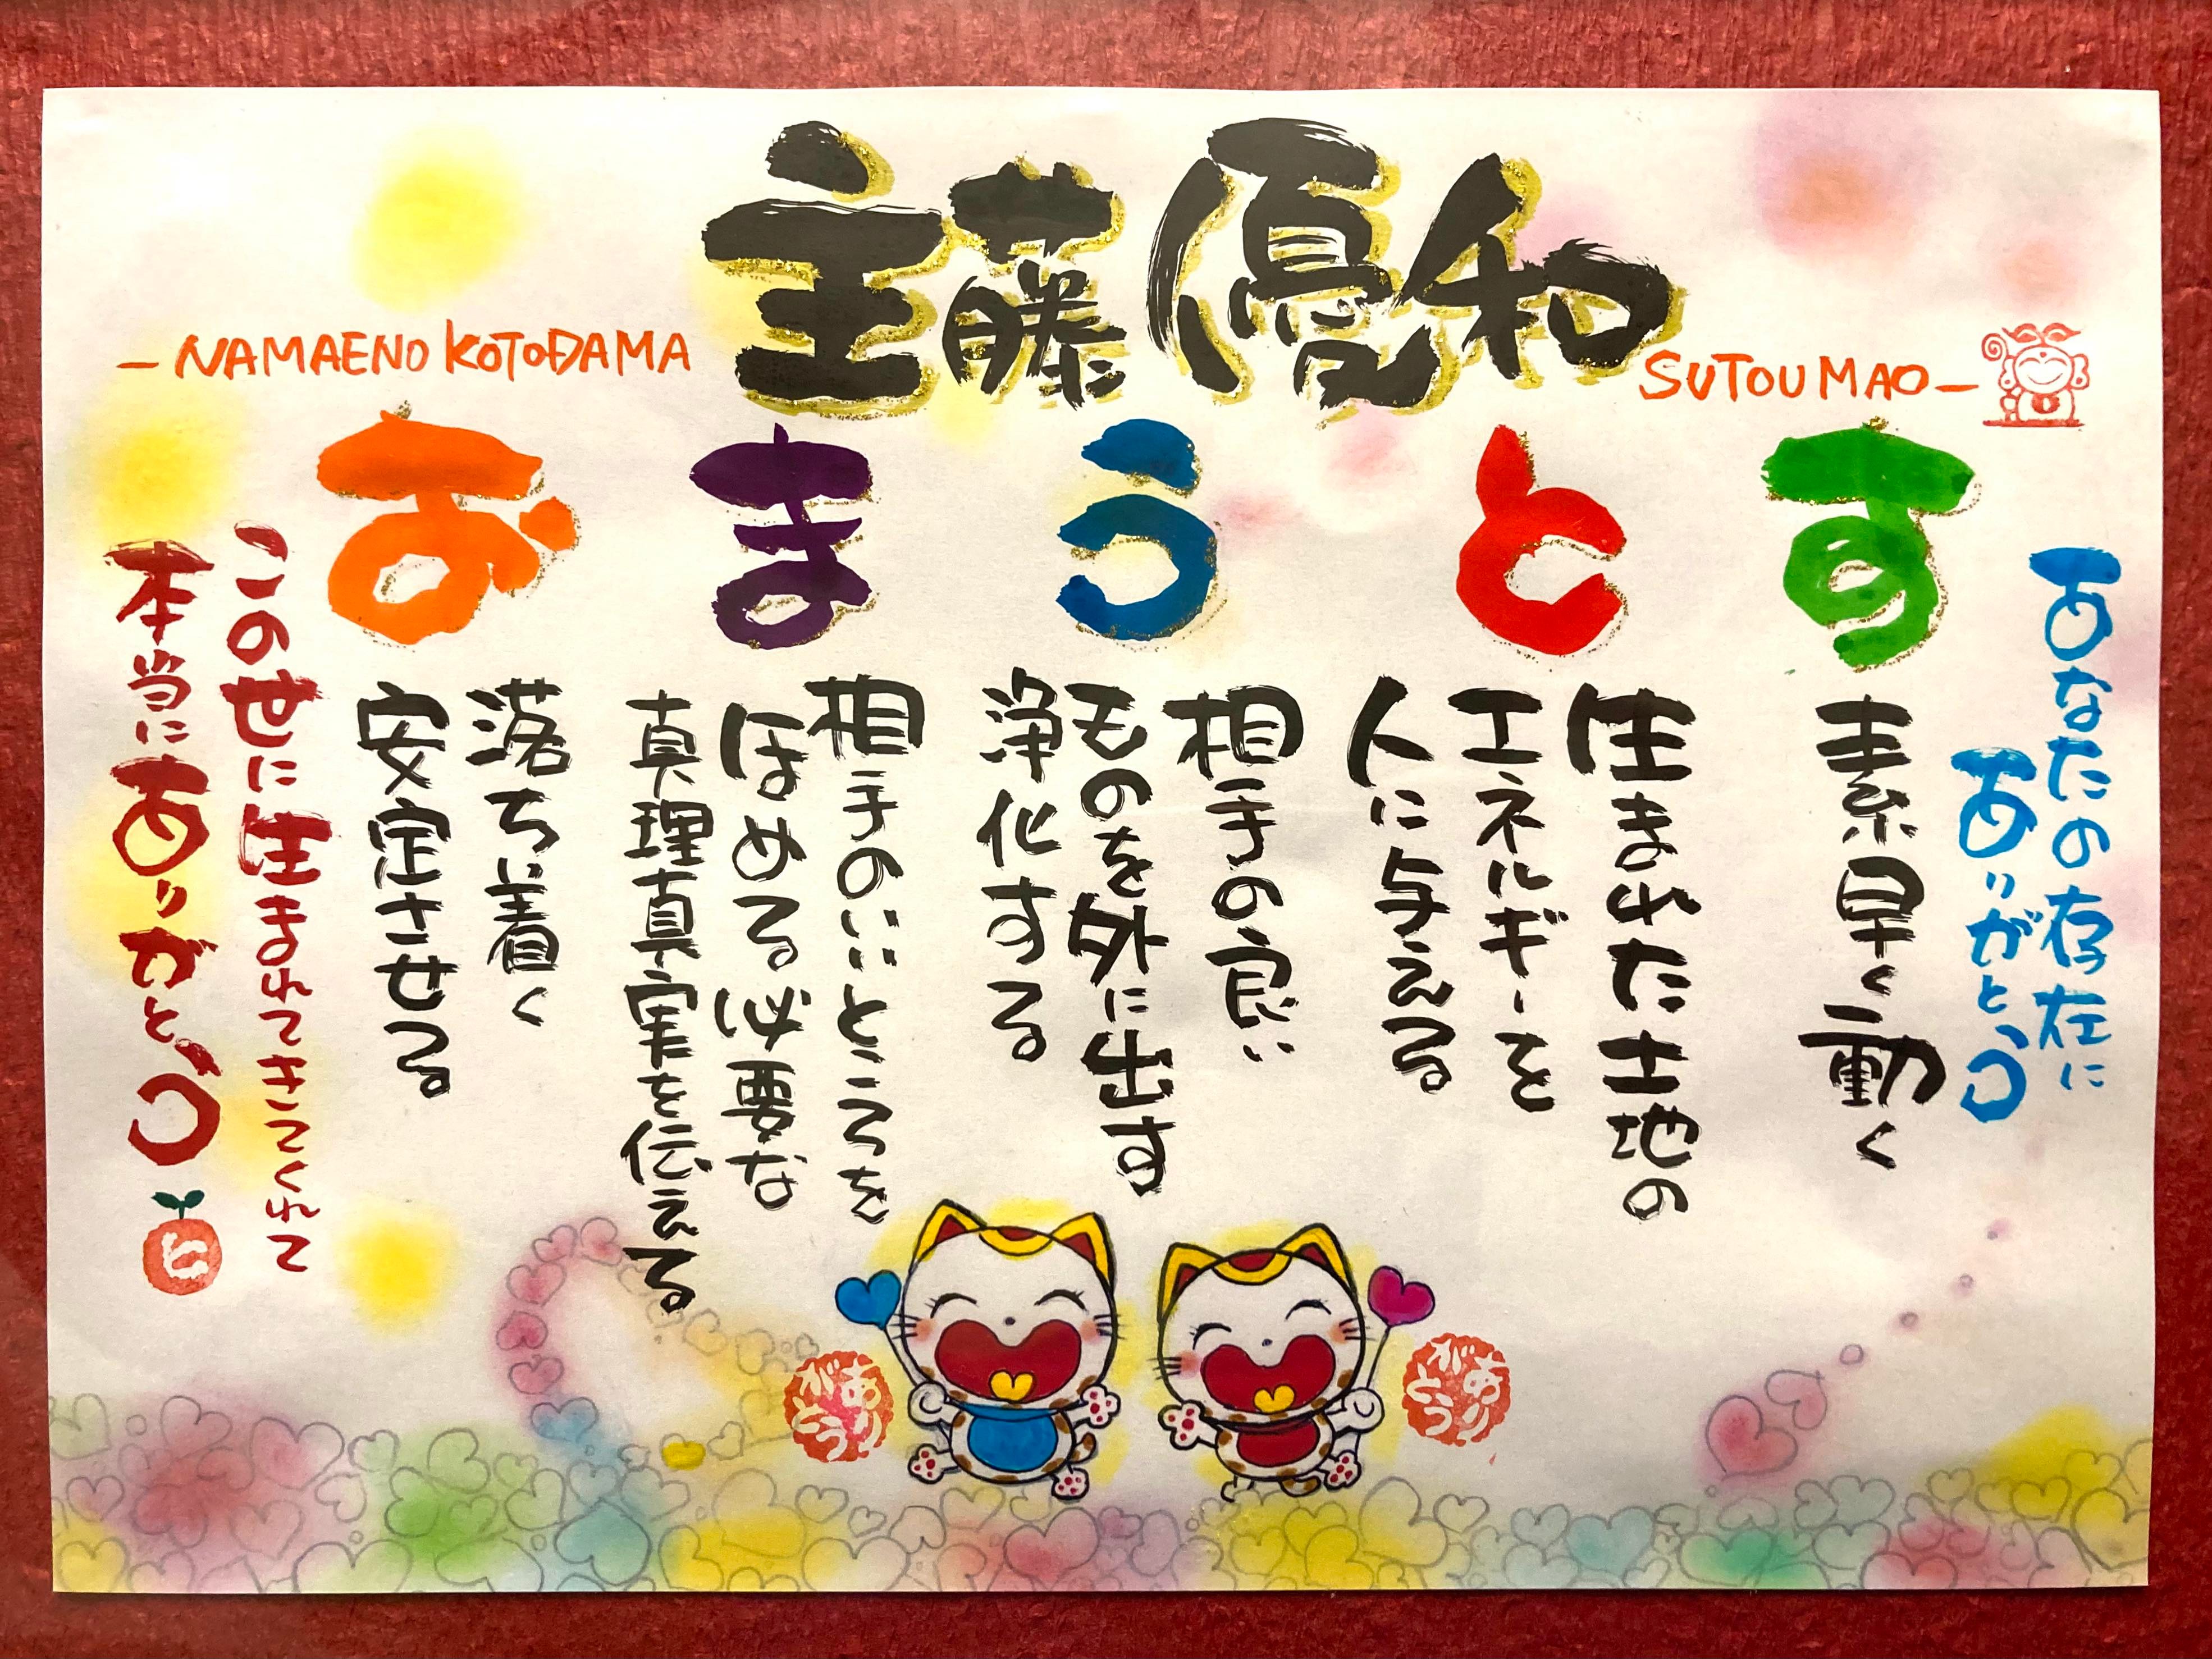 主藤優和
— NAMAENO KOTODAMA
SUTOU MAO —
あなたの存在に
ありがとう
す
素早く動く
と
生まれた土地の
エネルギーを
人に与える
う
相手の良い
ものを外に出す
浄化する
ま
相手のいいところを
ほめる必要な
真理真実を伝える
お
落ち着く
安定させる
この世に生まれてきてくれて
本当にありがとう
ヒ
ありがとう
ありがとう